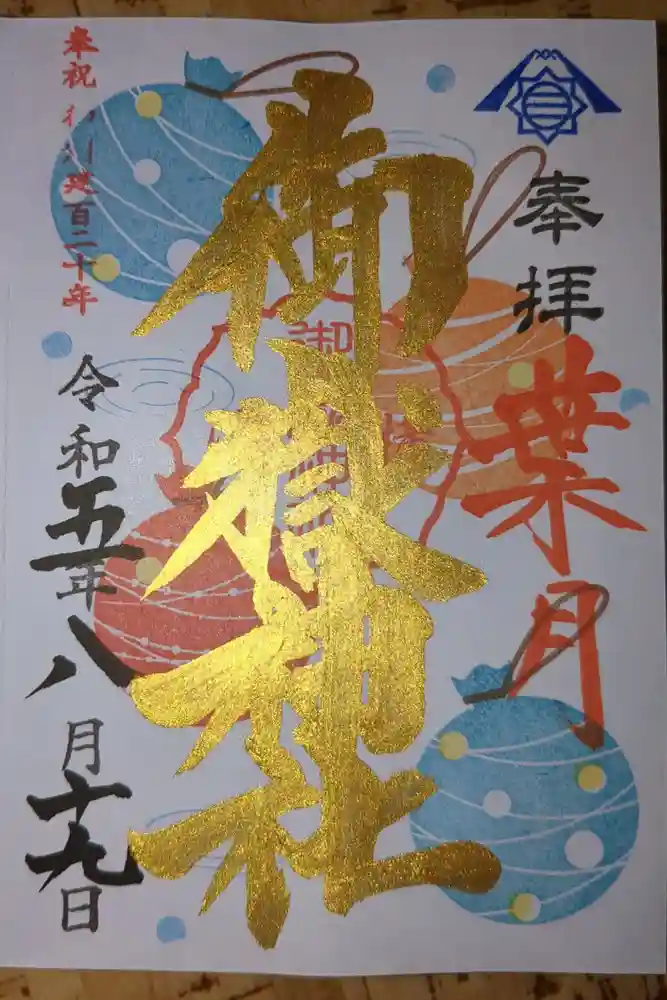 奉拝
葉月
御嶽神社
御嶽神社
奉祝 建百二十年
令和五年八月十九日